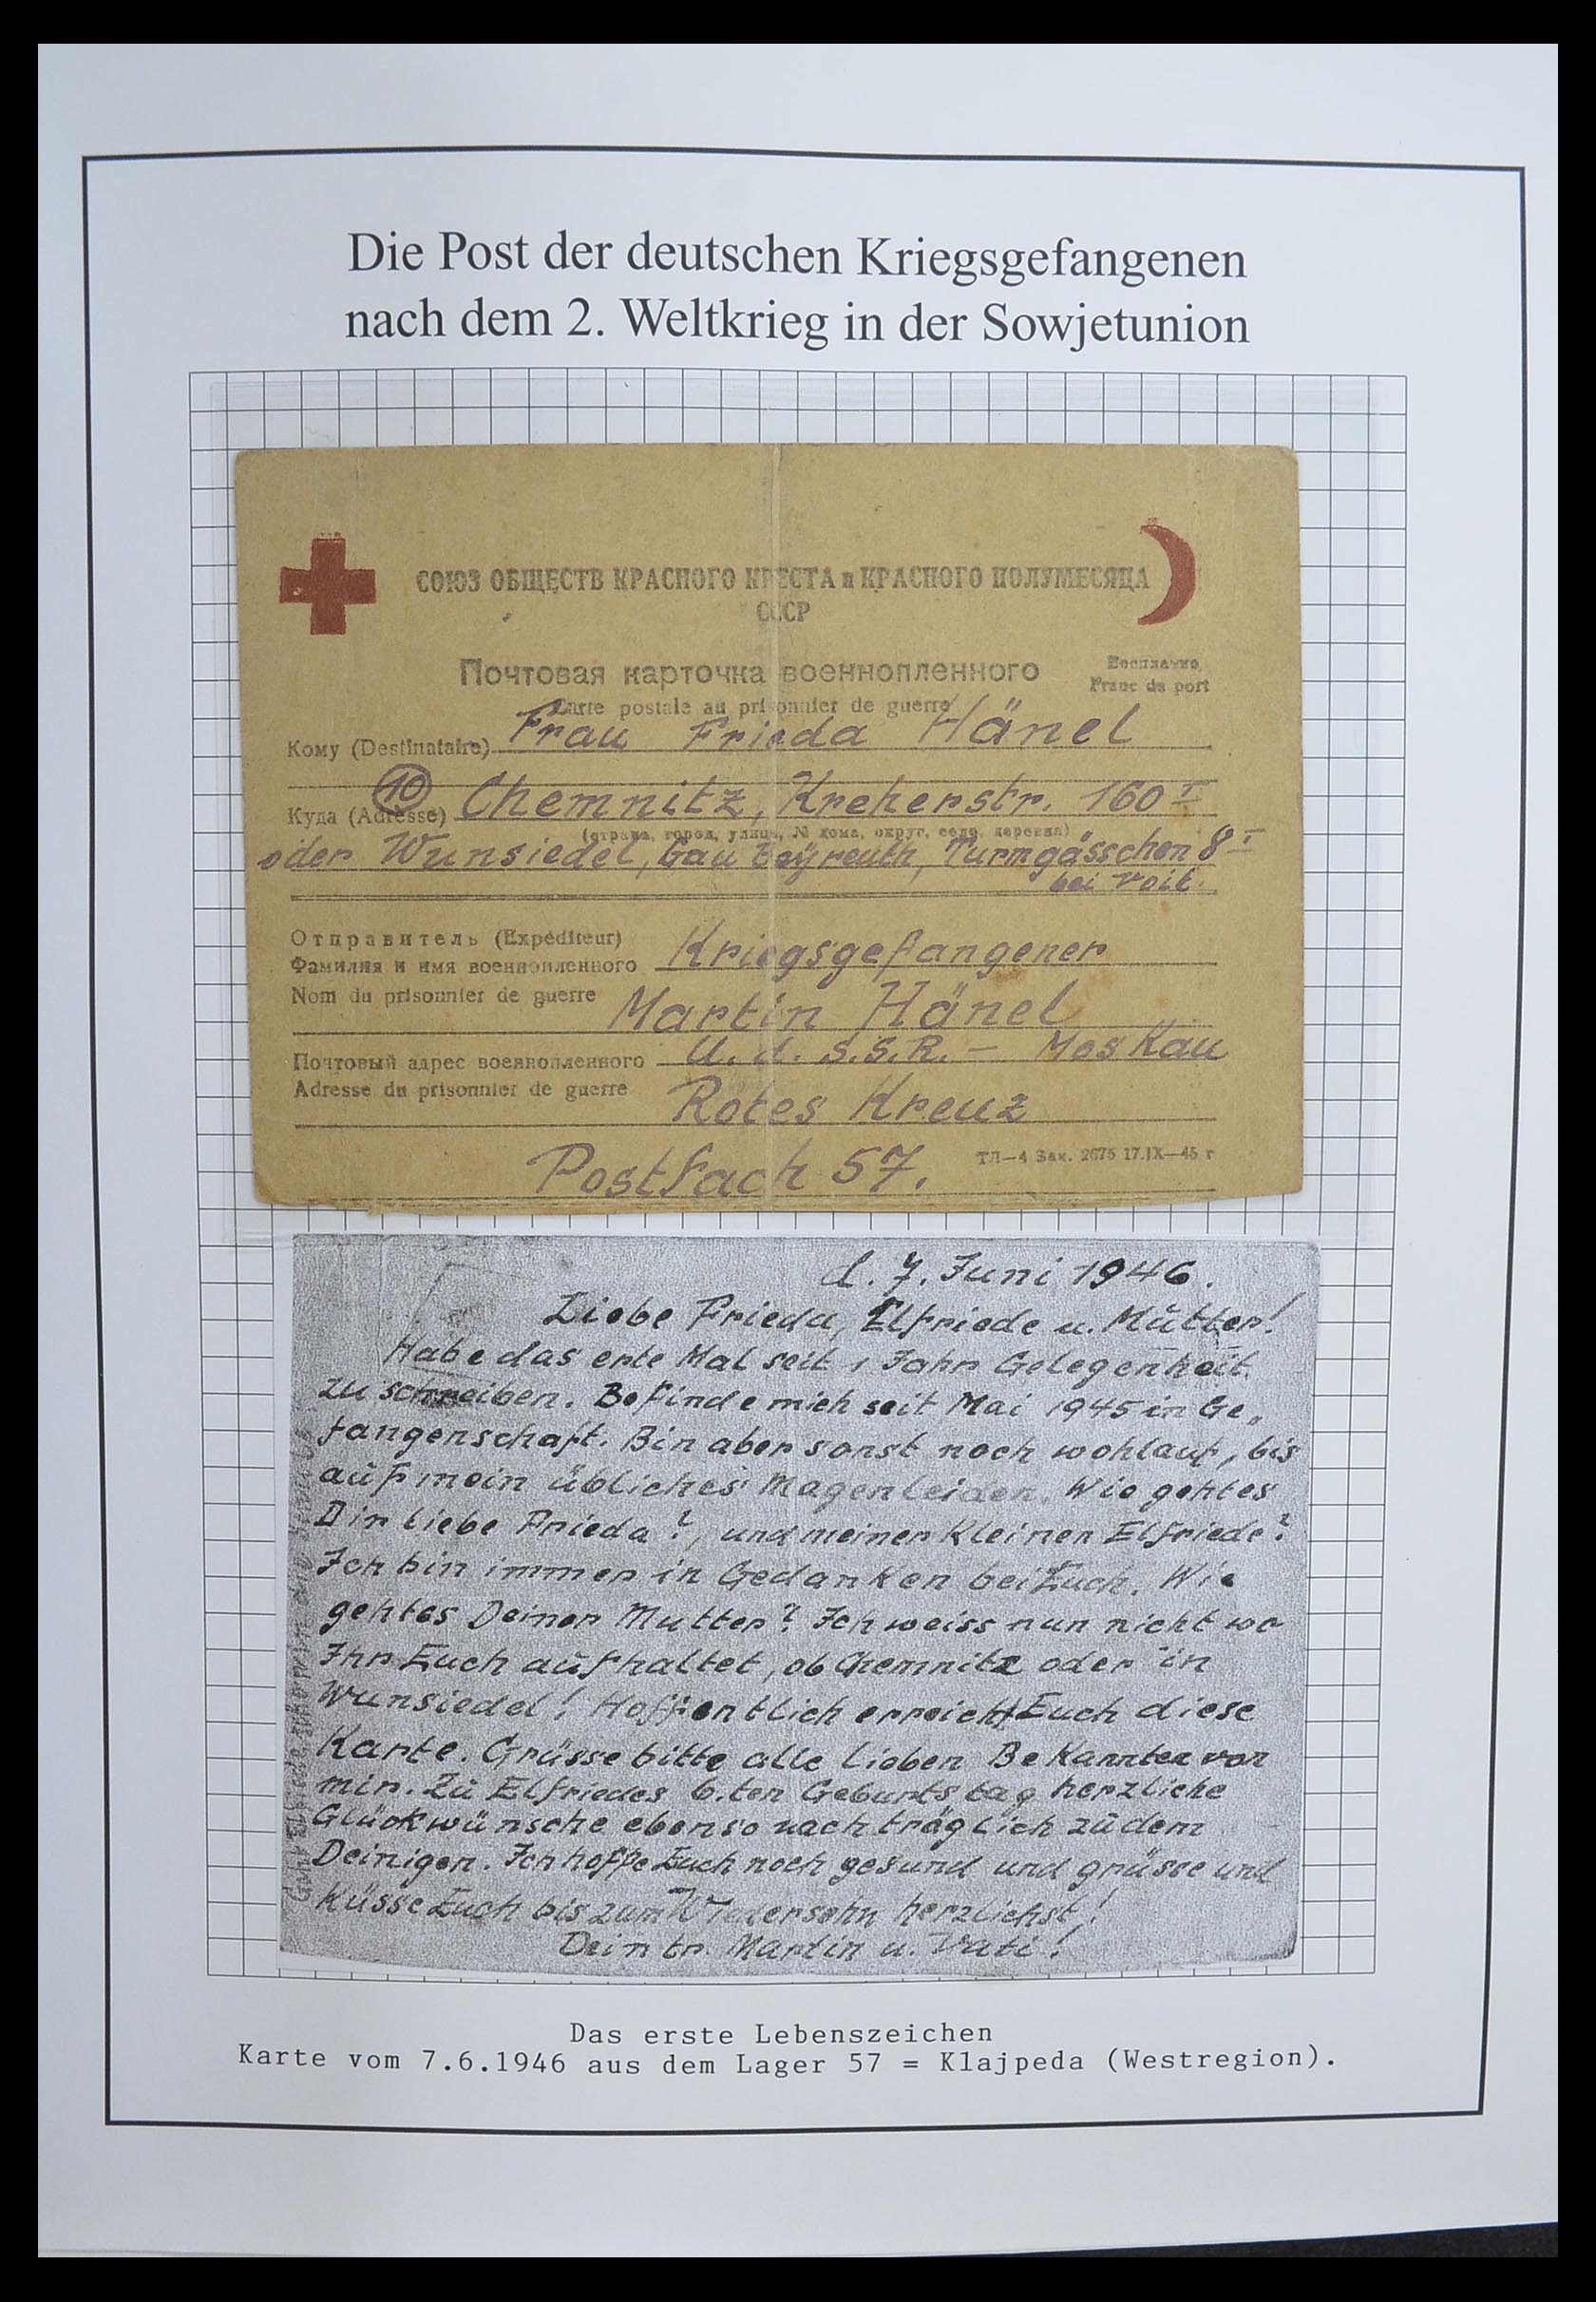 Die Post der deutschen Kriegsgefangenen
nach dem 2. Weltkrieg in der Sowjetunion
СОЮЗ ОБЩЕСТВ КРАСНОГО КРЕСТА и КРАСНОГО ПОЛУМЕСЯЦА
СССР
Почтовая карточка военнопленного
Бесплатно
Carte postale au prisonnier de guerre
Franc de port
Кому (Destinataire) Frau Frieda Hänel
10
Куда (Adresse) Chemnitz, Kreherstr. 160 I
(страна, город, улица, № дома, округ, село, деревня)
oder Wunsiedel, Gau Bayreuth, Turmgässchen 8 I
bei Voit.
Отправитель (Expéditeur)
Фамилия и имя военнопленного Kriegsgefangener
Nom du prisonnier de guerre Martin Hänel
Почтовый адрес военнопленного U.d.S.S.R. – Moskau
Adresse du prisonnier de guerre Rotes Kreuz
Postfach 57.
ТЛ—4 Зак. 2675 17.IX—45 г
d. 7. Juni 1946.
Liebe Frieda, Elfriede u. Mutter!
Habe das erste Mal seit 1 Jahr Gelegenheit
zu schreiben. Befinde mich seit Mai 1945 in Ge„
fangenschaft. Bin aber sonst noch wohlauf, bis
auf mein übliches Magenleiden. Wie geht es
Dir liebe Frieda?, und meiner Kleinen Elfriede?
Ich bin immer in Gedanken bei Euch. Wie
geht es Deiner Mutter? Ich weiss nun nicht wo
Ihr Euch aufhaltet, ob Chemnitz oder in
Wunsiedel! Hoffentlich erreicht Euch diese
Karte. Grüsse bitte alle lieben Bekannten von
mir. Zu Elfriedes 6.ten Geburtstag herzliche
Glückwünsche ebenso nachträglich zu dem
Deinigen. Ich hoffe Euch noch gesund und grüsse und
Küsse Euch bis zum Wiedersehn herzlichst!
Dein tr. Martin u. Vati!
Das erste Lebenszeichen
Karte vom 7.6.1946 aus dem Lager 57 = Klajpeda (Westregion).